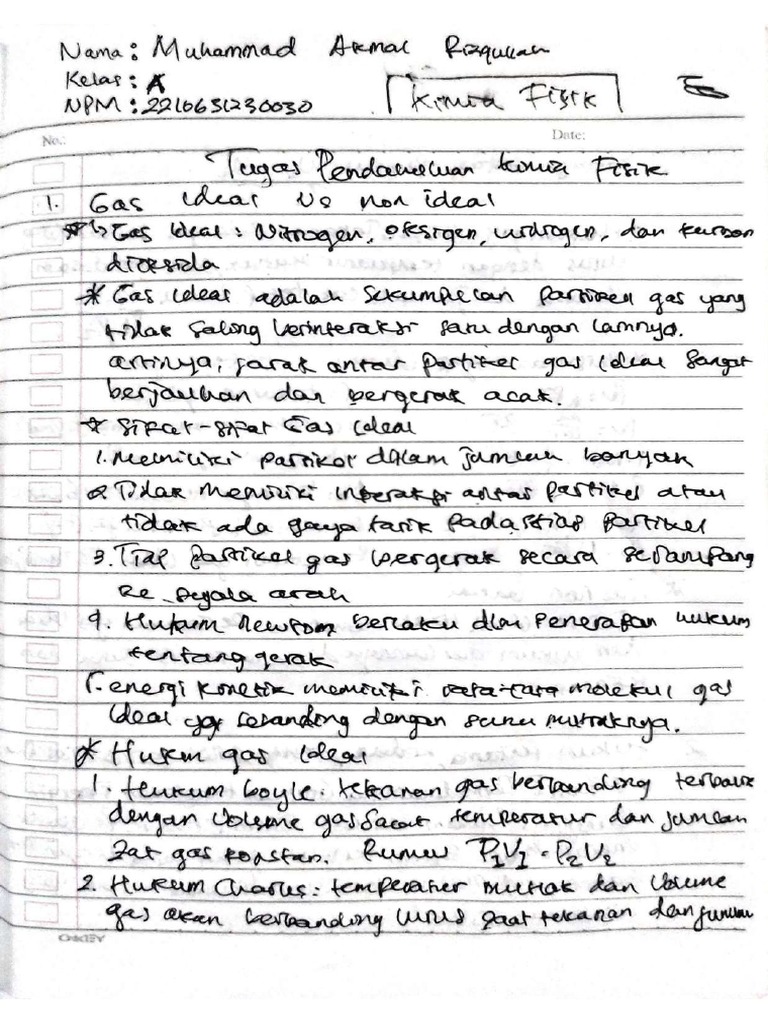 Nama : Muhammad Akmal Rizqullah
Kelas : A
NPM : 2210631230030
Kimia Fisik
No.: Date:
Tugas Pendahuluan Kimia Fisik
1. Gas ideal vs non ideal
* Gas ideal : Nitrogen, oksigen, hidrogen, dan karbon
dioksida
* Gas ideal adalah sekumpulan partikel gas yang
tidak saling berinteraksi satu dengan lainnya.
artinya, jarak antar partikel gas ideal sangat
berjauhan dan bergerak acak.
* Sifat-sifat Gas ideal
1. Memiliki partikel dalam jumlah banyak
2. Tidak memiliki interaksi antar partikel atau
tidak ada gaya tarik pada setiap partikel
3. Tiap partikel gas bergerak secara serampang
ke segala arah
4. Hukum newton berlaku dlm penerapan hukum
tentang gerak
5. energi kinetik memiliki rata-rata molekul gas
ideal sebanding dengan suhu mutlaknya.
* Hukum gas ideal
1. Hukum boyle : tekanan gas berbanding terbalik
dengan volume gas saat temperatur dan jumlah
zat gas konstan. Rumus P1V1 = P2V2
2. Hukum Charles : temperatur mutlak dan volume
gas akan berbanding lurus saat tekanan dan jumlah